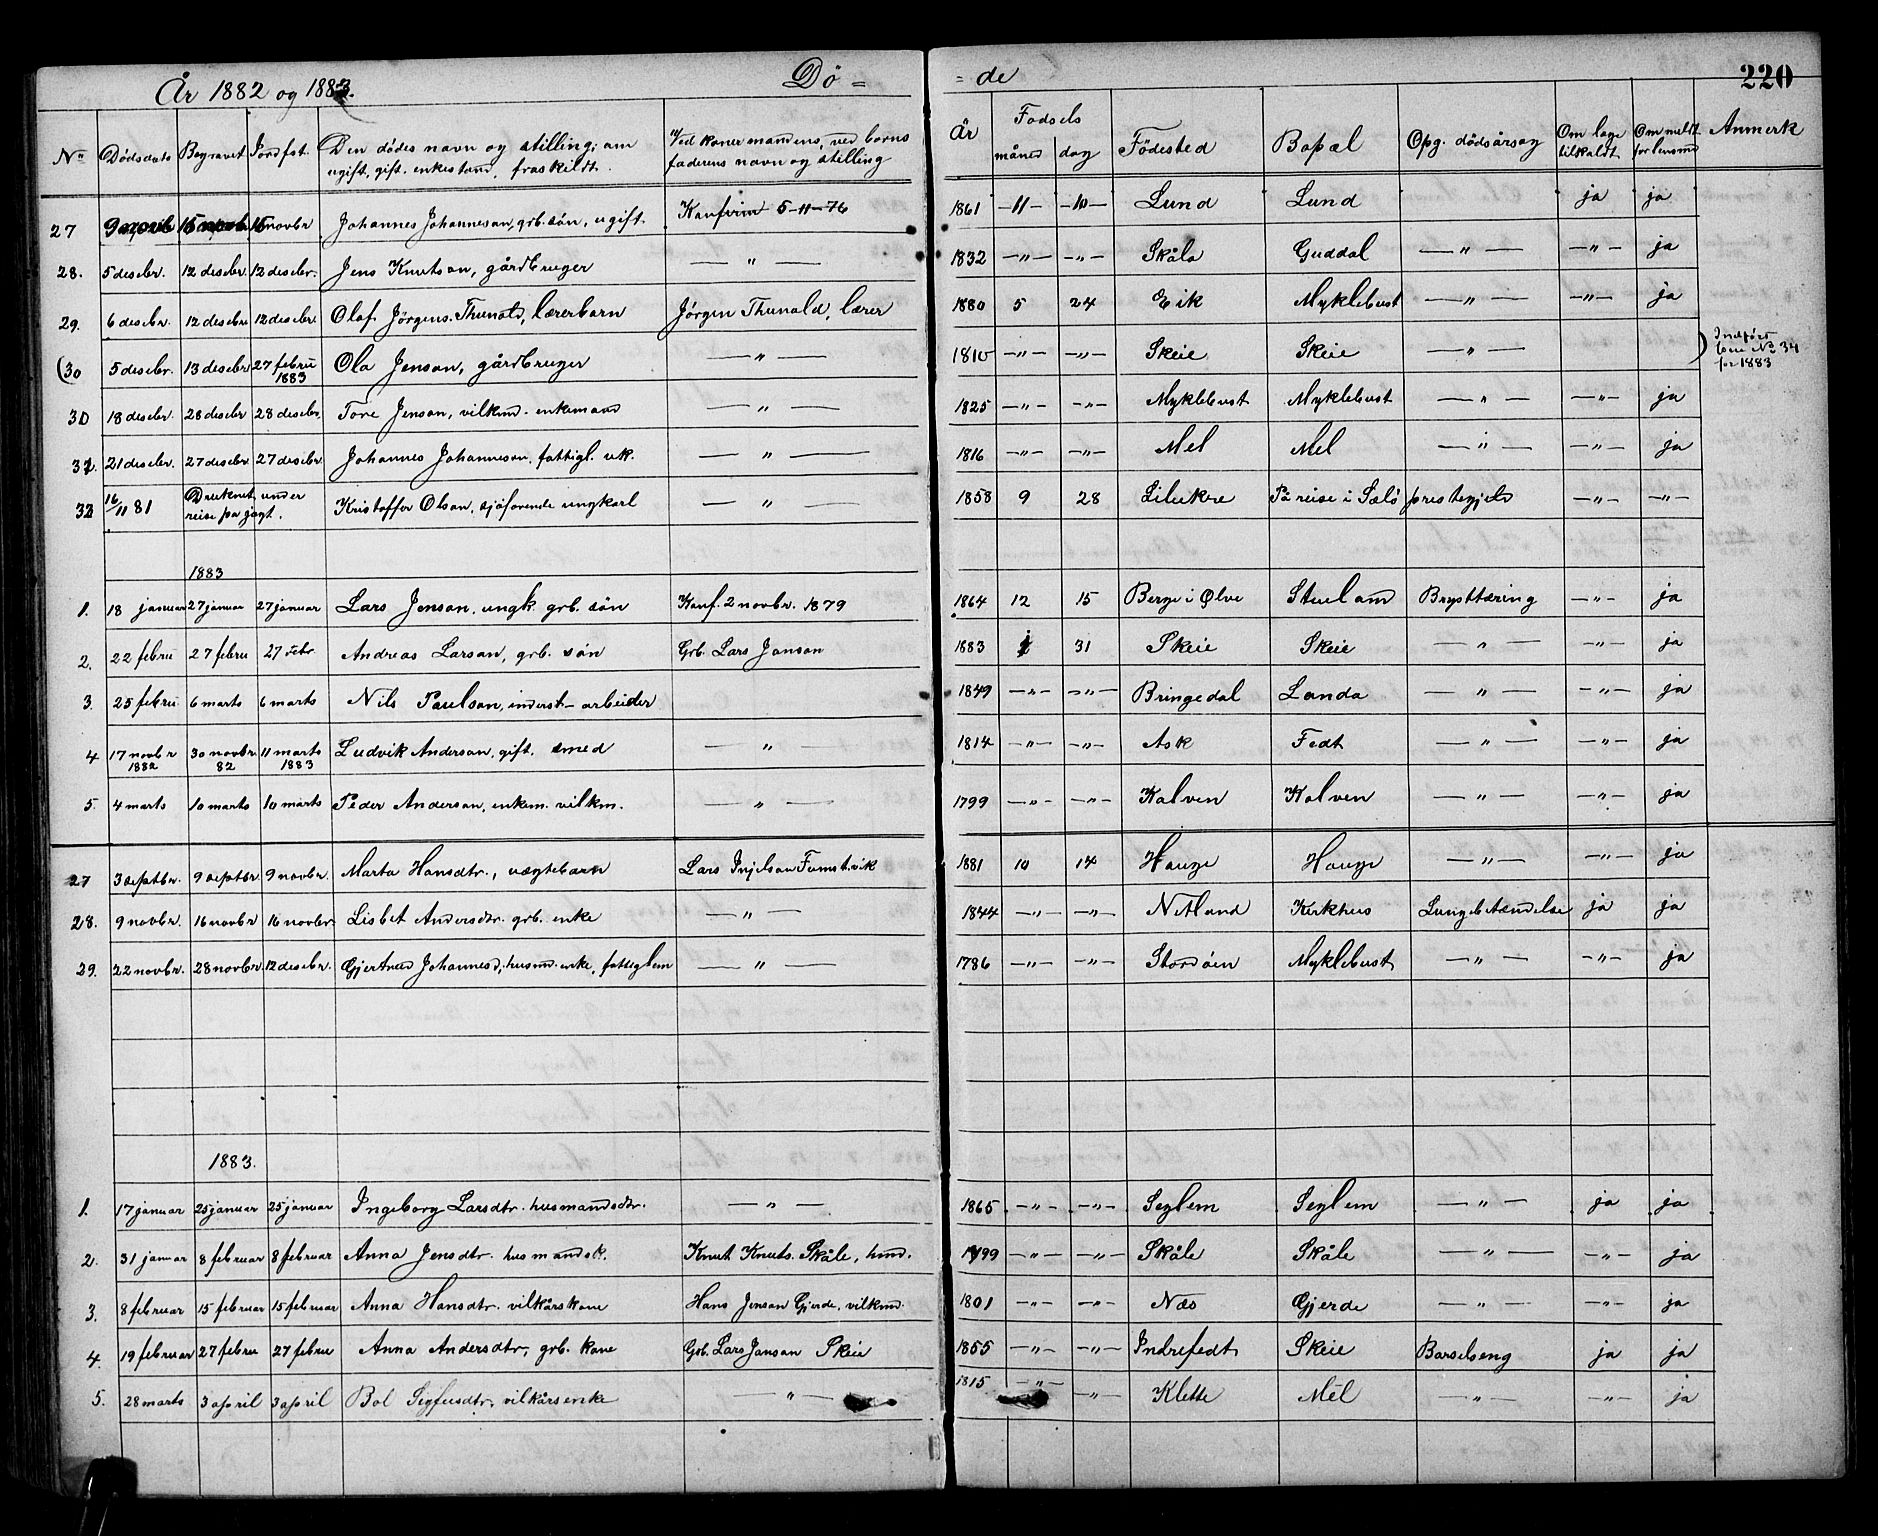 År 1882 og 1883. Dö = = de 220
Nº Dødsdato Begravet Jordfst. Den dödes navn og stilling; om ugift, gift, enkestand, fraskildt. Ved koner mandens, ved børns faderens navn og stilling År Fødsels måned dag Födested Bopæl Opg. dödsårsag Om læge tilkaldt Om meldt for lensmd Anmerk
27 9 novbr 16 novbr 16 novbr Johannes Johannesson, grb. søn, ugift. Konfirm 5-11-76 1861 11 10 Lund Lund ja ja
28. 5 desebr. 12 desebr. 12 desebr. Jens Knutson, gårdbruger — " — 1832 — " — — " — Skåla Guddal — " — — " — ja
29. 6 desebr. 12 desebr 12 desebr. Olaf Jörgens. Thunold, lærerbarn Jörgen Thunald, lærer 1880 5 24 Eik Myklebust — " — — " — ja
(30 5 desebr. 13 desebr 27 febru 1883 Ola Jenson, gårdbruger — " — 1810 — " — — " — Skeie Skeie — " — ) Indført Nº 34 for 1883
31 18 desebr. 28 desebr 28 desebr. Tore Jenson, vilkmd. enkemand — " — 1825 — " — — " — Myklebust Myklebust — " — — " — ja
32. 21 desebr. 27 desebr 27 desebr. Johannes Johanneson, fattigl. uk. — " — 1816 — " — — " — Mel Mel — " — — " — ja
33 16/11 81 Druknet under reise på jagt. Kristoffer Olson, sjøfarende ungkarl — " — 1858 9 28 Lilukre På reise i Sælö prestegjeld — " — — " —
1883
1. 18 januar 27 januar 27 januar Lars Jenson, ungk. grb. søn Konf. 2 novbr. 1879 1864 12 15 Berge i Ølve Stueland Brysttæring — " — ja
2. 22 febru 27 febru 27 febr. Andreas Larson, grb. søn Grb. Lars Janson 1883 1 31 Skeie Skeie — " — — " — ja
3. 25 febru 6 marts 6 marts Nils Paulson, inderst - arbeider 1849 — " — — " — Bringedal Landa — " — — " — ja
4 17 novbr 1882 30 novbr. 82 11 marts 1883 Ludvik Anderson, gift. smed — " — 1814 — " — — " — Ask Fedt — " — — " — ja
5. 4 marts 10 marts 10 marts Peder Anderson, enkem. vilkm. — " — 1799 — " — — " — Kalven Kalven — " — — " — ja
27 3 septbr. 9 septbr 9 novbr. Marta Hansdtr., uægtebarn Lars Injelson 1881 10 14 Hauge Hauge — " — — " — ja
28. 9 novbr. 16 novbr 16 novbr. Lisbet Andersdtr. grb. enke — " — 1844 — " — — " — Netland Kirkhus Lungebetændelse ja ja
29. 22 novbr. 28 novbr. 12 desebr. Gjertrud Johannesd., husmd. enke, fattiglem — " — 1786 — " — — " — Stordöen Myklebust — " — — " — ja
1883.
1. 17 januar 25 januar 25 januar Ingeborg Larsdtr. husmandsdtr. — " — 1865 — " — — " — Seglem Seglem — " — ja ja
2. 31 januar 8 februar 8 februar Anna Jensdtr. husmandsk. Knut Knuts. Skåle, hmd. 1799 — " — — " — Skåle Skåle — " — — " — ja
3. 8 februar 15 februar 15 februar Anna Hansdtr. vilkårskone Hans Jenson Gjerde, vilkmd. 1801 — " — — " — Næs Gjerde — " — — " — ja
4. 19 februar 27 febru 27 februar Anna Andersdtr, grb. kone Grb. Lars Janson Skeie 1855 — " — — " — Indrefedt Skeie Barselseng ja ja
5. 28 marts 3 april 3 april Bol Sigfusdtr, vilkårsenke — " — 1815 — " — — " — Klette Mel — " — — " — ja